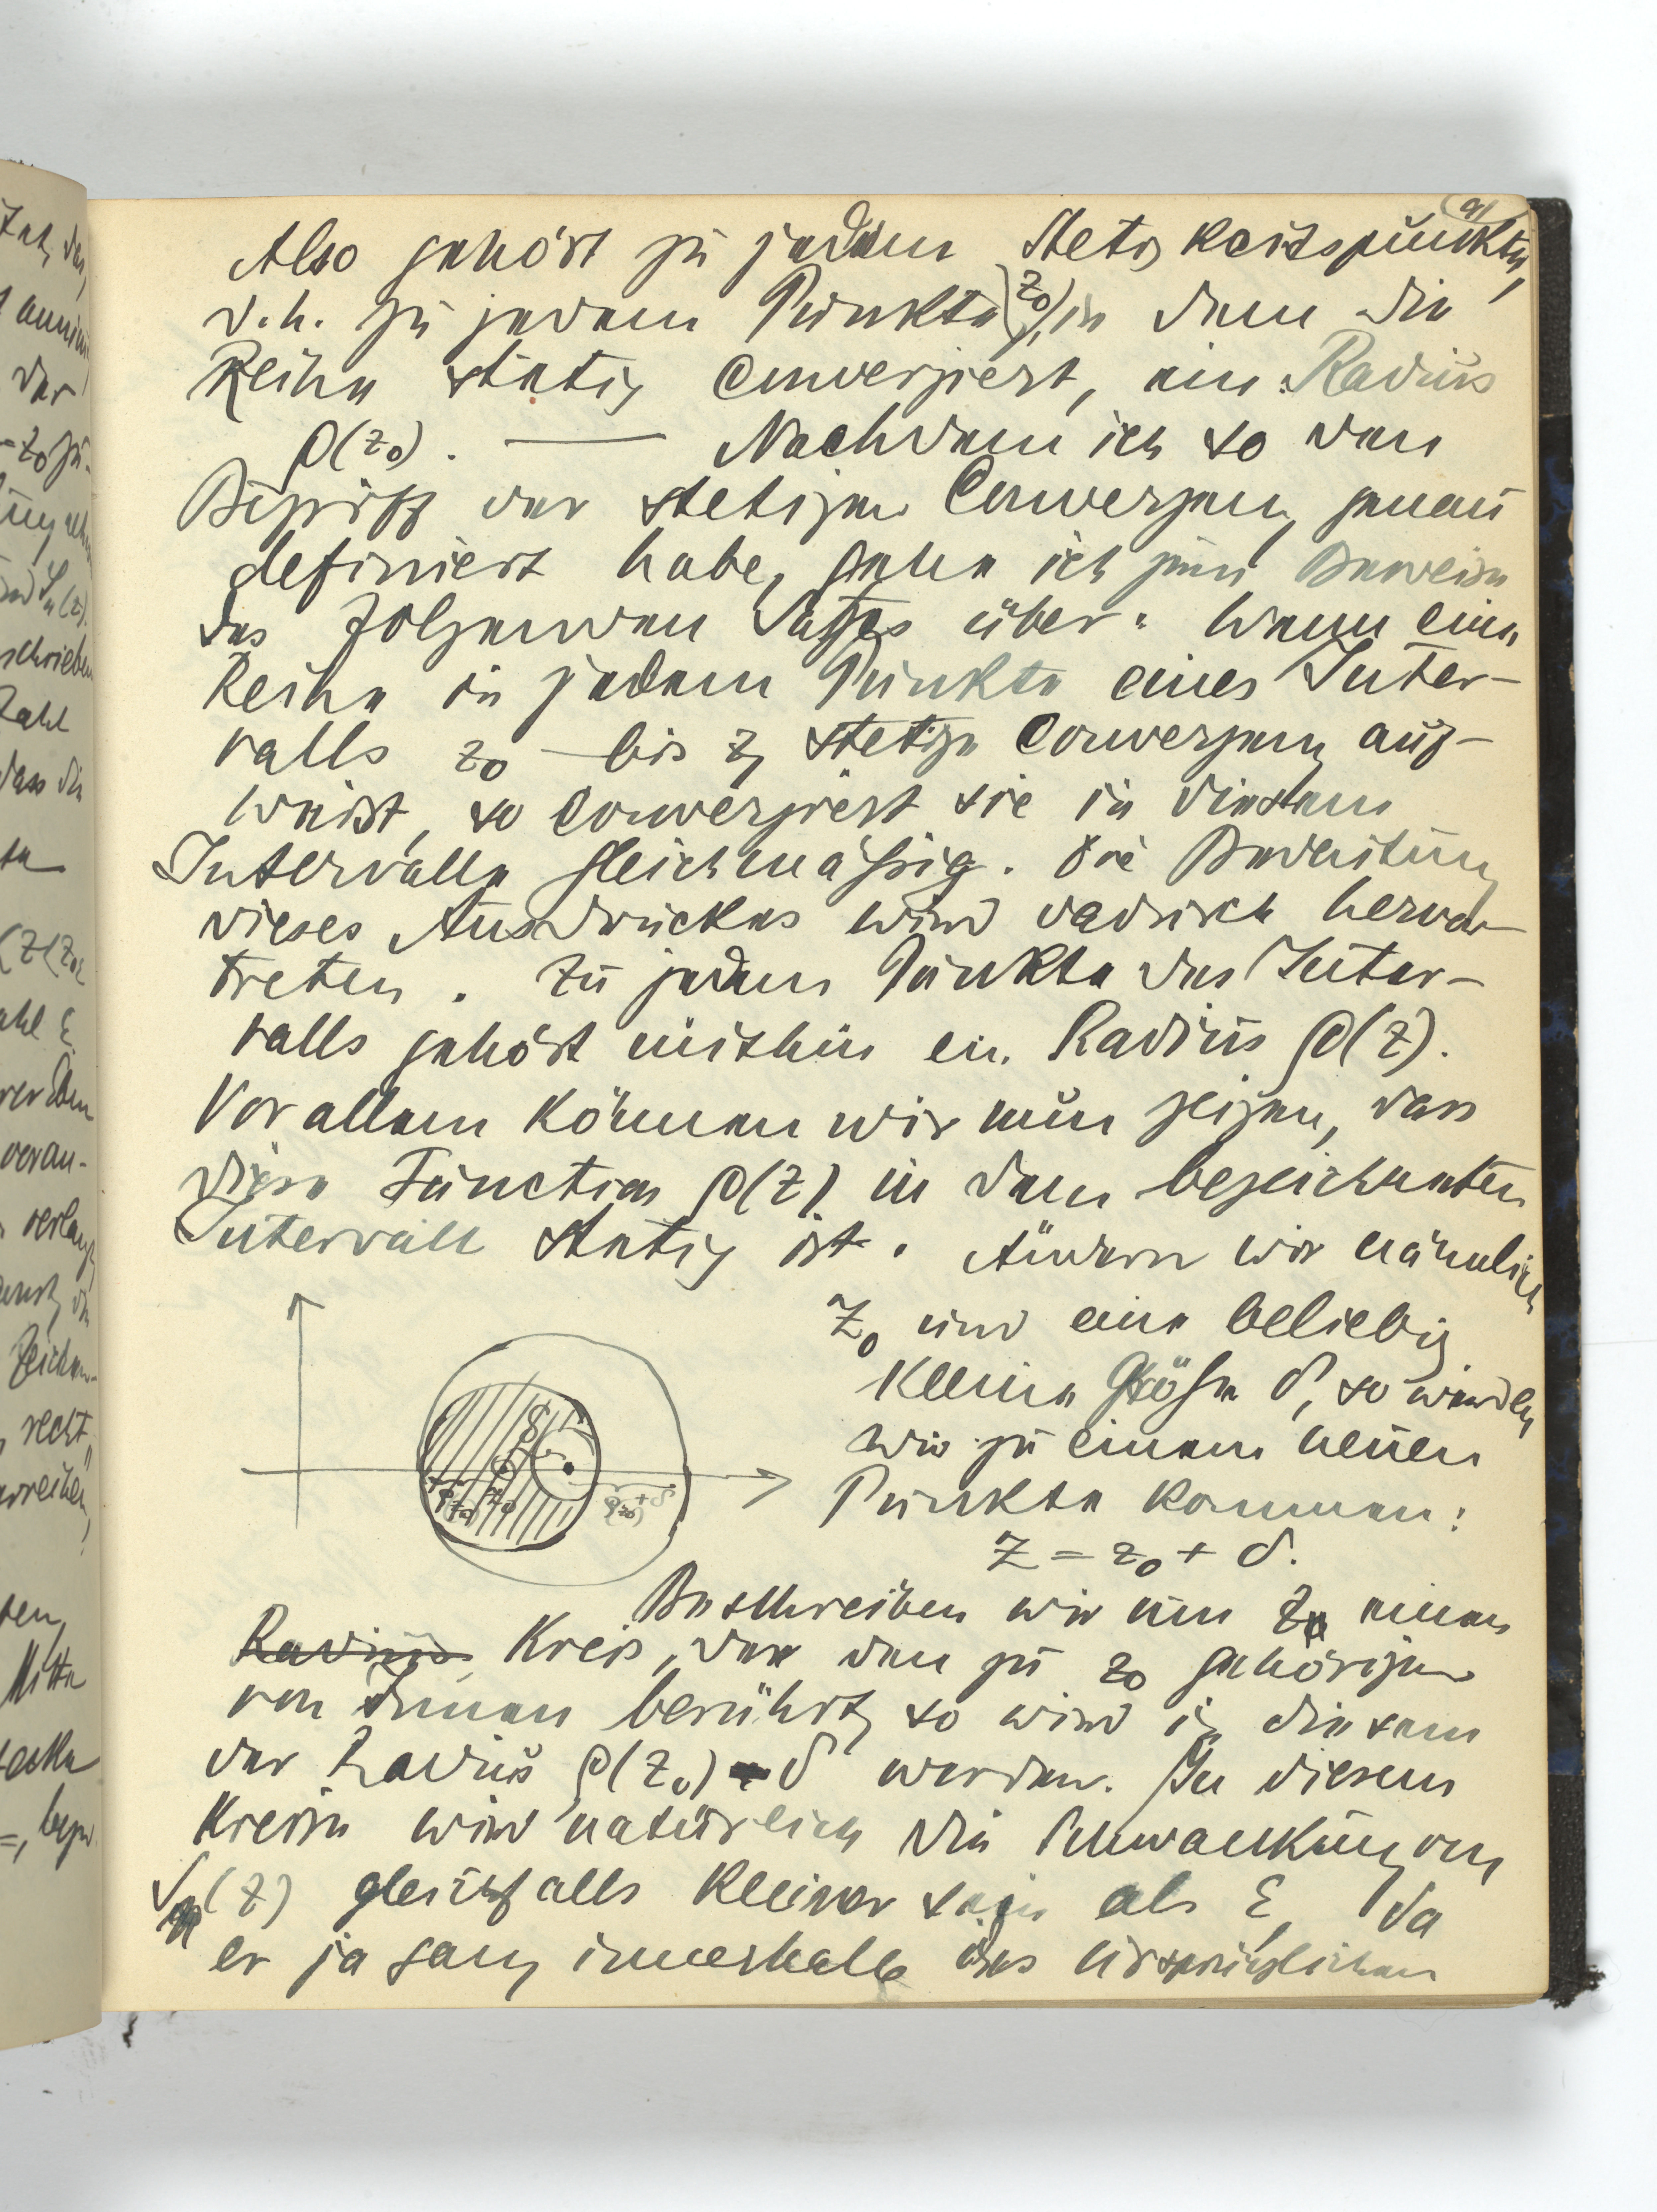 9)
Also gehört zu jedem Stetigkeitspunkte,
d.h. zu jedem Punkte (z₀), in dem die
Reihe stetig convergiert, ein Radius
ρ(z₀). — Nachdem ich so den
Begriff der stetigen Convergenz genau
definiert habe, gehe ich zum Beweise
des folgenden Satzes über: Wenn eine
Reihe in jedem Punkte eines Inter-
valls z₀ bis z, stetige Convergenz auf-
weist, so convergiert sie in diesem
Intervalle gleichmäßig. Die Bedeutung
dieses Ausdruckes wird dadurch hervor
treten. Zu jedem Punkte des Inter-
valls gehört mithin ein Radius ρ(z).
Vor allem können wir nun zeigen, dass
diese Function ρ(z) in dem bezeichneten
Intervall stetig ist. Ändern wir nämlich
z₀ um eine beliebig
kleine Größe δ, so werden
wir zu einem neuen
Punkte kommen:
z = z₀ + δ.
Beschreiben wir um z einen
Radius Kreis, der den zu z₀ gehörigen
von Innen berührt, so wird in diesem
der Radius ρ(z₀) - δ werden. In diesem
Kreise wird natürlich die Schwankung von
(z) gleichfalls kleiner sein als ε, da
er ja ganz innerhalb des ursprünglichen
δ
ρ(z₀) z₀ ρ(z₀)+δ